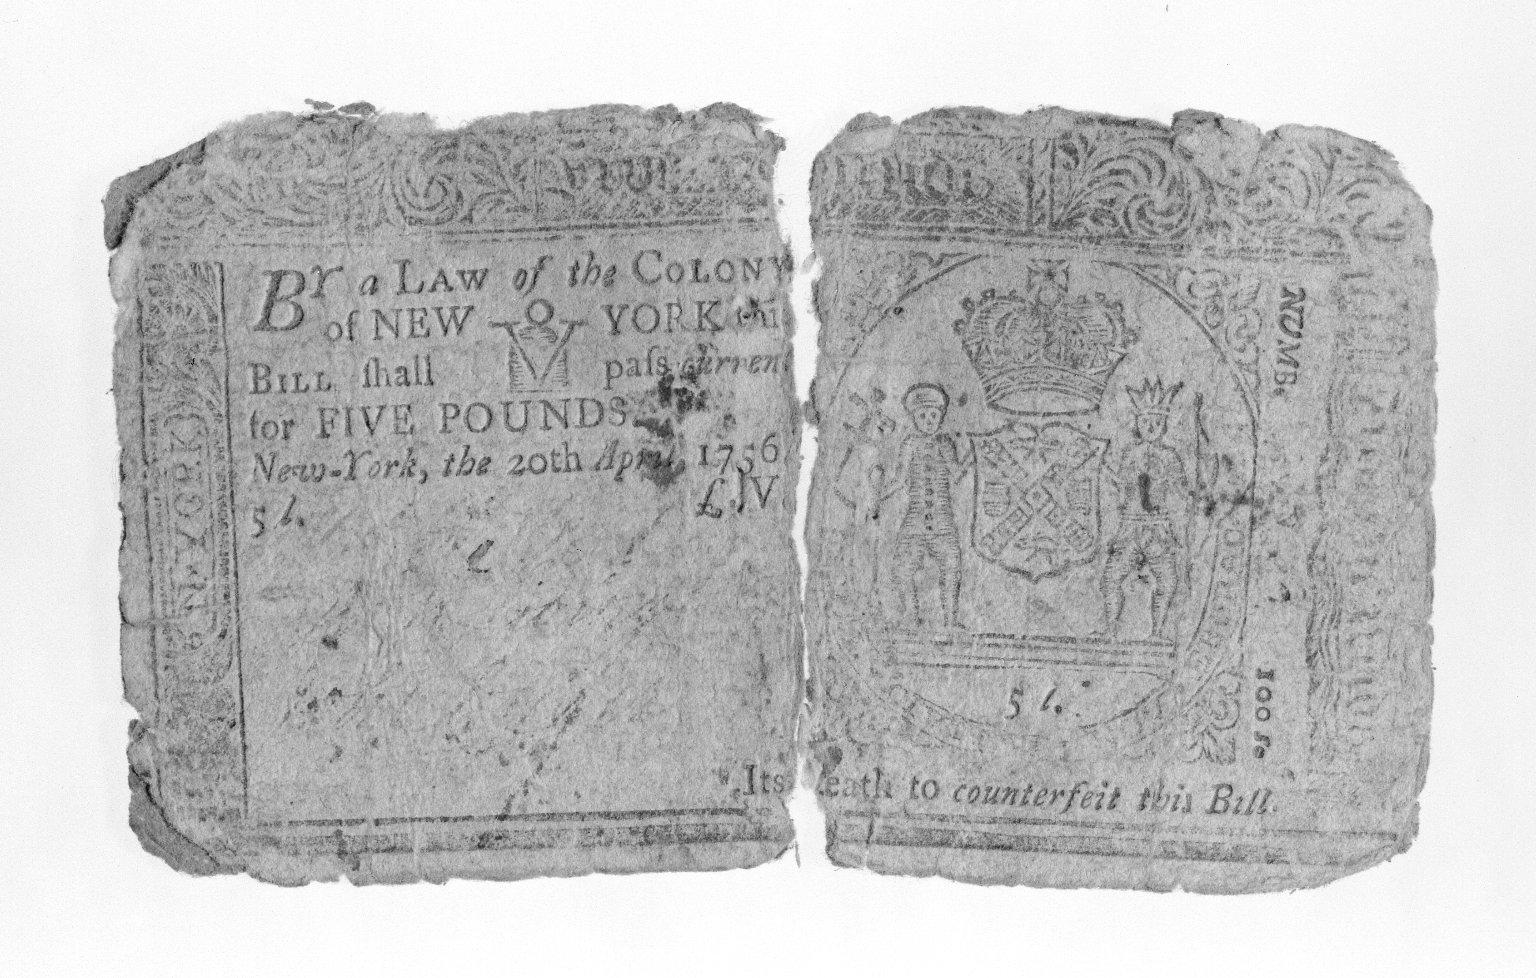 BY a LAW of the COLONY
of NEW V YORK thi
BILL ſhall paſs current
for FIVE POUNDS.
New-York, the 20th April, 1756.
5 l. £.V.
N. YORK
NUMB.
100 s.
5 l.
Its death to counterfeit this Bill.